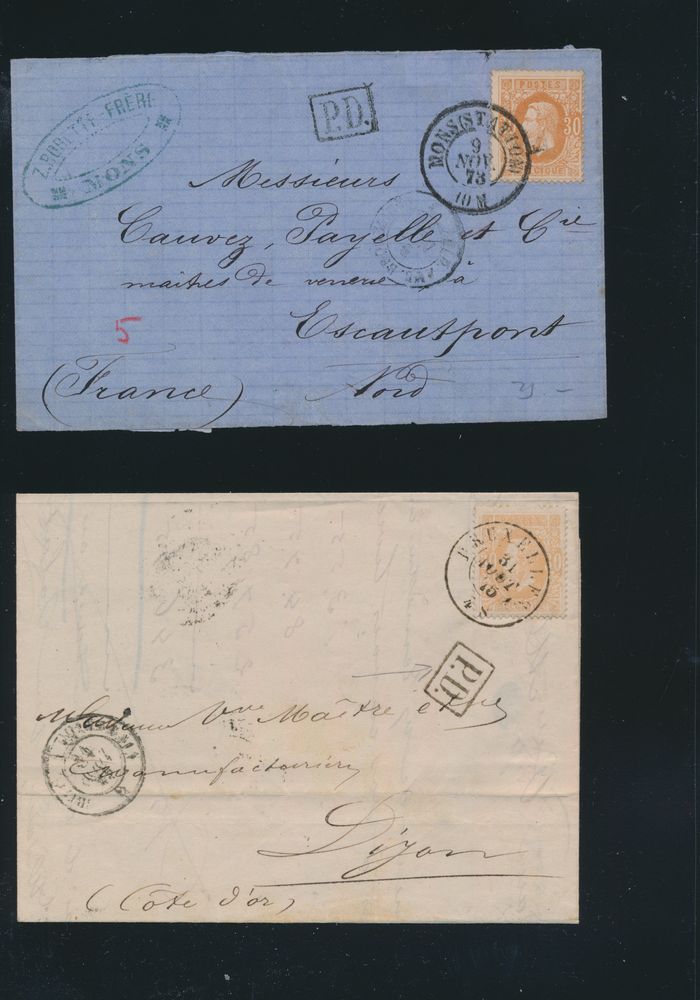 FRÈRE
MONS
P.D.
POSTES
30
MONS (STATION)
9
NOV
73
10 M
Messieurs
Cauvez, Payelle et Cie
maîtres de verrerie à
Escautpont
5
(France) Nord
BRUXELLES
31
AOUT
P.D.
Madame Vve Maître
Manufacturière
Dijon
(Côte d'or)